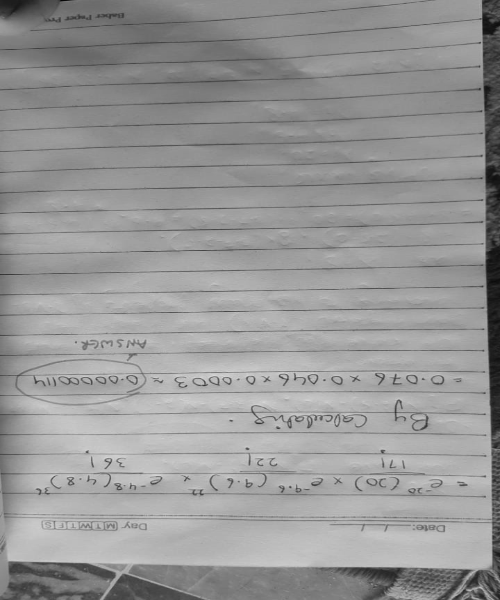 Date: / / Day M T W T F S
= e⁻²⁰(20) × e⁻⁹·⁶(9.6)²² × e⁻⁴·⁸(4.8)³⁶
17! 22! 36!
By Calculating.
= 0.076 × 0.046 × 0.0003 ≈ 0.00000114
ANSWER.
Baber Paper Pro